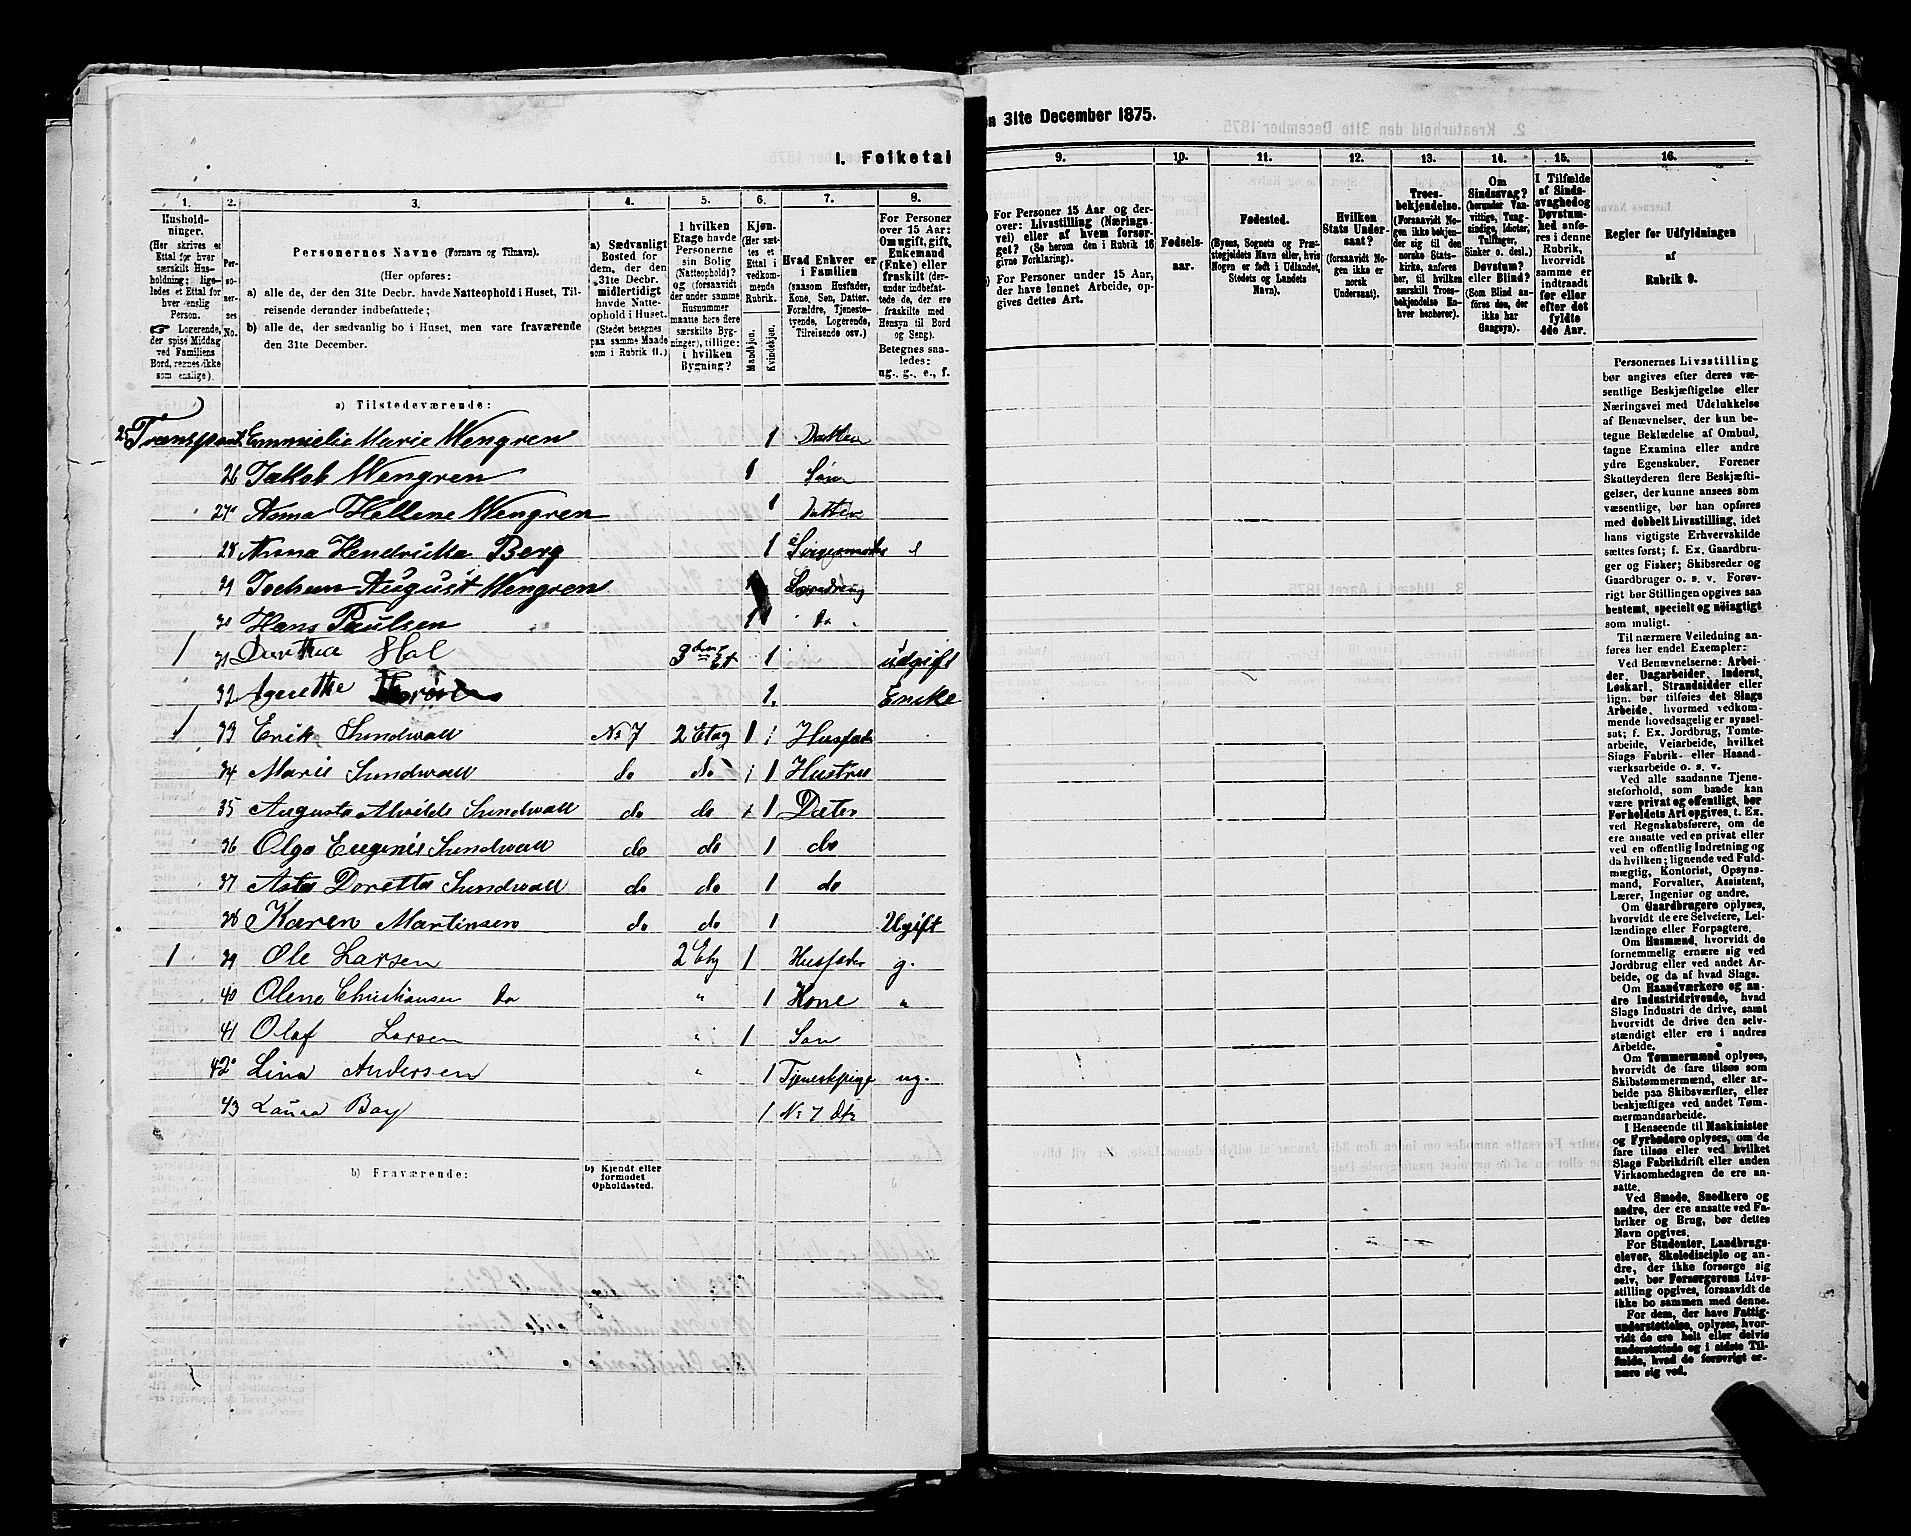 I. Folketal
1.
2.
3.
4.
5.
6.
7.
8.
Hushold-
ninger.
(Her skrives et
Ettal for hver
særskilt Hus-
holdning; lige-
ledes et Ettal for
hver enslig
Person.
☞ Logerende,
der spise Middag
ved Familiens
Bord, regnes ikke
som enslige).
Per-
so-
ner-
nes
No.
Personernes Navne (Fornavn og Tilnavn).
(Her opføres:
a) alle de, der den 31te Decbr. havde Natteophold i Huset, Til-
reisende derunder indbefattede;
b) alle de, der sædvanlig bo i Huset, men vare fraværende
den 31te December.
a) Sædvanligt
Bosted for
dem, der den
31te Decbr.
midlertidigt
havde Natte-
ophold i Huset.
(Stedet betegnes
paa samme Maade
som i Rubrik 11.)
I hvilken
Etage havde
Personerne
sin Bolig
(Natteophold)?
og (forsaavidt
der under samme
Husnummer
maatte høre flere
særskilte Byg-
ninger), tillige:
i hvilken
Bygning?
Kjøn.
(Her sæt-
tes et
Ettal i
vedkom-
mende
Rubrik.
Mandkjøn.
Kvindekjøn.
Hvad Enhver er
i Familien
(saasom Husfader,
Kone, Søn, Datter.
Forældre, Tjeneste-
tyende, Logerende,
Tilreisende osv.)
For Personer
over 15 Aar:
Om ugift, gift,
Enkemand
(Enke) eller
fraskilt (der-
under indbefat-
tede de, der ere
fraskilte med
Hensyn til Bord
og Seng).
Betegnes saa-
ledes:
ug., g., e., f.
a) Tilstedeværende:
25 Transport Emmielie Marie Wengren 1 Datter
26 Jakob Wengren 1 Søn
27 Anna Hellene Wengren 1 Datter
28 Anna Hendrikka Berg 1 e
29 Jochum August Wengren 1 Læredreng
30 Hans Paulsen 1 do
1 31 Dorthea Hol 3 Et 1 udgift
32 Agnethe 1 Encke
1 33 Erik Sundwall No 7 2 Etag 1 Husfad
34 Marie Sundwall do do 1 Hustru
35 Augusta Alvilde Sundwall do do 1 Dater
36 Olga Eugenie Sundwall do do 1 do
37 Asta Doretta Sundwall do do 1 do
38 Karen Martinsen do do 1 Ugift
1 39 Ole Larsen 2 Etg 1 Husfader g.
40 Olene Christiansen do " 1 Kone "
41 Olaf Larsen " 1 Søn
42 Lina Andersen " 1 Tjenestpige ug.
43 Laura Bay 1 No 7
b) Fraværende:
b) Kjendt eller
formodet
Opholdssted.
en 31te December 1875.
9.
10.
11.
12.
13.
14.
15.
16.
) For Personer 15 Aar og der-
over: Livsstilling (Nærings-
vei) eller af hvem forsør-
get? (Se herom den i Rubrik 16
givne Forklaring).
) For Personer under 15 Aar,
der have lønnet Arbeide, op-
gives dettes Art.
Fødsels-
aar.
Fødested.
(Byens, Sognets og Præ-
stegjeldets Navn eller, hvis
Nogen er født i Udlandet,
Stedets og Landets
Navn).
Hvilken
Stats Under-
saat?
(forsaavidt No-
gen ikke er
norsk
Undersaat).
Troes-
bekjendelse.
(Forsaavidt No-
gen ikke bekjen-
der sig til den
norske Stats-
kirke, anføres
her, til hvilken
særskilt Troes-
bekjendelse En-
hver henhører).
Om
Sindssvag?
(herunder Van-
vittige, Tung-
sindige, Idioter,
Tullinger,
Sinker o. desl.).
Døvstum?
eller Blind?
(Som Blind an-
føres den, der
ikke har
Gangsyn).
I Tilfælde
af Sinds-
svaghed og
Døvstum-
hed anfø-
res i denne
Rubrik,
hvorvidt
samme er
indtraadt
før eller ef-
ter det
fyldte
4de Aar.
Regler for Udfyldningen
af
Rubrik 9.
Personernes Livsstilling
bør angives efter deres væ-
sentlige Beskjæftigelse eller
Næringsvei med Udelukkelse
af Benævnelser, der kun be-
tegne Beklædelse af Ombud,
tagne Examina eller andre
ydre Egenskaber. Forener
Skatteyderen flere Beskjæfti-
gelser, der kunne ansees som
væsentlige, bør han opføres
med dobbelt Livsstilling, idet
hans vigtigste Erhvervskilde
sættes først; f. Ex. Gaardbru-
ger og Fisker; Skibsreder og
Gaardbruger o. s. v. Forøv-
rigt bør Stillingen opgives saa
bestemt, specielt og nøiagtigt
som muligt.
Til nærmere Veiledning an-
føres her endel Exempler:
Ved Benævnelserne: Arbei-
der, Dagarbeider, Inderst,
Løskarl, Strandsidder eller
lign. bør tilføies det Slags
Arbeide, hvormed vedkom-
mende hovedsagelig er syssel-
sat; f. Ex. Jordbrug, Tomte-
arbeide, Veiarbeide, hvilket
Slags Fabrik- eller Haand-
værksarbeide o. s. v.
Ved alle saadanne Tjene-
steforhold, som baade kan
være privat og offentligt, bør
Forholdets Art opgives, t. Ex.
ved Regnskabsførere, om de
ere ansatte ved en privat eller
ved en offentlig Indretning og
da hvilken; lignende ved Fuld-
mægtig, Kontorist, Opsyns-
mand, Forvalter, Assistent,
Lærer, Ingeniør og andre.
Om Gaardbrugere oplyses,
hvorvidt de ere Selveiere, Lei-
lændinge eller Forpagtere.
Om Husmænd, hvorvidt de
fornemmelig ernære sig ved
Jordbrug eller ved andet Ar-
beide, og da af hvad Slags.
Om Haandværkere og an-
dre Industridrivende, hvad
Slags Industri de drive, samt
hvorvidt de drive den selv-
stændigt eller ere i andres
Arbeide.
Om Tømmermænd oplyses,
hvorvidt de fare tilsøs som
Skibstømmermænd, eller ar-
beide paa Skibsværfter, eller
beskjæftiges ved andet Tøm-
mermandsarbeide.
I Henseende til Maskinister
og Fyrbødere oplyses, om de
fare tilsøs eller ved hvilket
Slags Fabrikdrift eller anden
Virksomhedsgren de ere an-
satte.
Ved Smede, Snedkere og
andre, der ere ansatte ved Fa-
briker og Brug, bør dettes
Navn opgives.
For Studenter, Landbrugs-
elever, Skoledisciple og an-
dre, der ikke forsørge sig
selv, bør Forsørgerens Livs-
stilling opgives, forsaavidt de
ikke bo sammen med denne.
For dem, der have Fattig-
understøttelse, oplyses, hvor-
vidt de ere helt eller delvis
understøttede og i sidste Til-
fælde, hvad de forøvrigt er-
nære sig ved.